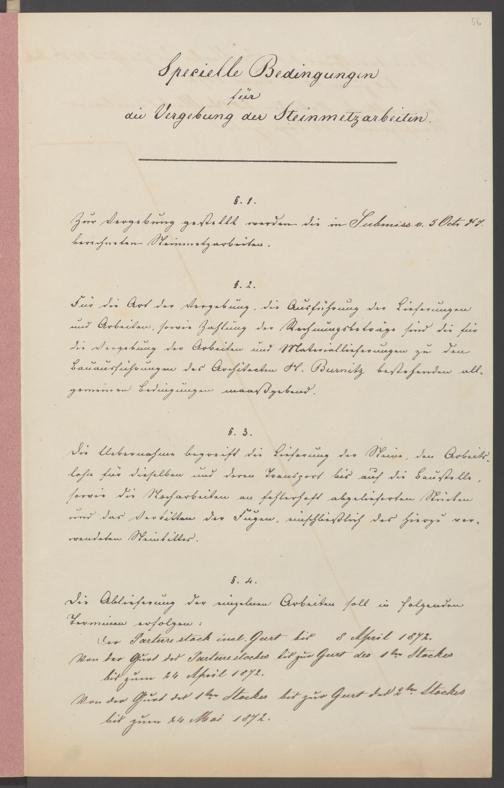 56
Specielle Bedingungen
für
die Vergebung der Steinmetzarbeiten.
§. 1.
Zur Vergebung gestellt werden die in Submiss. v. 3 Octr
bezeichneten Steinmetzarbeiten.
§. 2.
Für die Art der Vergebung, die Ausführung der Lieferungen
und Arbeiten, sowie Zahlung der Rechnungsbeträge sind die für
die Vergebung der Arbeiten und Materiallieferungen zu den
Bauausführungen des Architecten H. Burnitz bestehenden all-
gemeinen Bedingungen maasgebend.
§. 3.
Die Uebernahme begreift die Lieferung der Steine, den Arbeits-
lohn für dieselben und deren Transport bis auf die Baustelle,
sowie die Nacharbeiten an fehlerhaft abgelieferten Stücken
und das Verkitten der Fugen, einschließlich des hierzu ver-
wendeten Steinkittes.
§. 4.
Die Ablieferung der einzelnen Arbeiten soll in folgenden
Terminen erfolgen:
Der Parterrestock incl. Gurt bis 8 April 1872.
Von der Gurt des Parterrestockes bis zur Gurt des 1ten Stockes
bis zum 24 April 1872.
Von der Gurt des 1ten Stockes bis zur Gurt des 2ten Stockes
bis zum 24 Mai 1872.